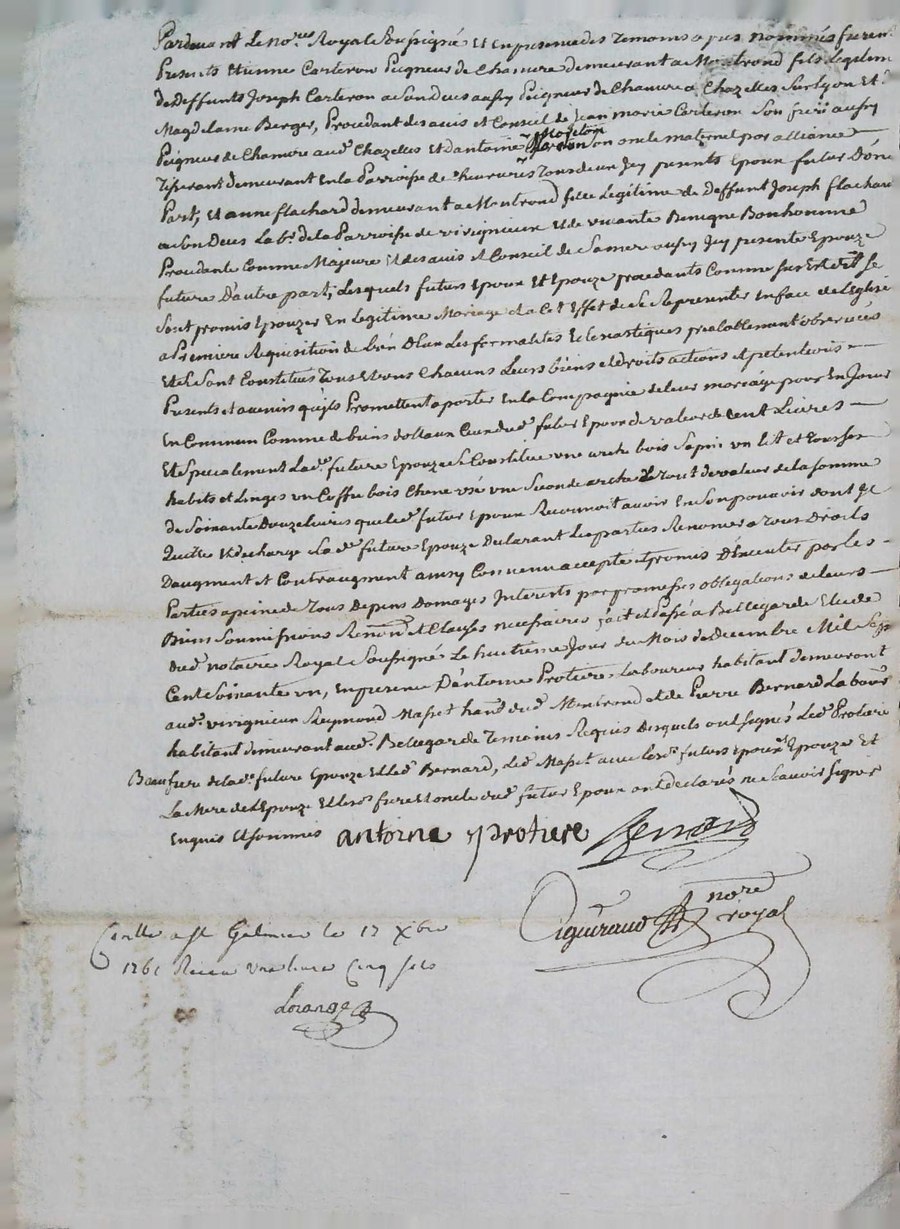 Pardevant Le Nore. Royal Soussigné Et En presence des Temoins a pres nommés furent
Presents Etienne Carteron Peigneur de Chanvre demeurant a Montrond fils Legitime
de Deffunts Joseph Carteron a Son deces aussy Peigneur de Chanvre a Chazelles Sur Lyon Et
Magdelaine Berger, Procedant des avis et Conseil de Jean marie Carteron Son frere aussy
Peigneur de Chanvre aud. Chazelles Et d'antoine son oncle maternel par alliance
Tisserant demeurant En la Parroisse de tous deux Jcy presents Epoux futur D'une
Part, Et anne flachard demeurant a Montrond fille Legitime de Deffunt Joseph flachard
a son Deces Labr. de la Parroisse de virignieux Et de vivante Benigne Bonhomme
Procedante Comme Majeure Et des avis et Conseil de Sa mere aussy Jcy presente Epouze
future D'autre part, Lesquels futurs Epoux Et Epouze procedants Comme Sus Est dit se
Sont promis Epouzer En Legitime Mariage Et a Cet Effet de Se Representer En face de L'Eglise
a Premiere Requisition de L'un D'Eux Les formalités Eclesiastiques prealablement observées
Et Se Sont Constitués Tous Et Uns Chacuns Leurs biens et droits actions Et pretentions
Presents et avenirs qu'ils Promettent aporter En la Compagnie de leur mariage pour En Jouir
En Commun Comme de biens dotaux Ceux dud. futur Epoux de valeur de Cent Livres
Et Specialement Lad. future Epouze Se Constitue une arche bois Sapin un lit et Trousser
habits et Linges un Coffre bois Chene usé une Seconde arche Le Tout de valeur de la Somme
de Soixante Douze livres que led. futur Epoux Reconnoit avoir En Son pouvoir dont Il
Quitte Et decharge Lad. future Epouze Declarant Les parties Renoncer a Tous Droits
Daugment et Contraugment ainsy Convenu accepté Et promis D'Executer par les
Parties a peine de Tous Depens Domages Interets par promesses obligations de leurs
Biens Soumissions Renon. Et Clauses necessaires fait et Passé a Bellegarde Etude
Dud. notaire Royal Soussigné Le huitieme Jour du Mois de Decembre Mil Sept
Cent Soixante un, En presence D'antoine Protiere Laboureur habitant demeurant
aud. virignieux Reymond Masset hant. dud. Montrond Et de Pierre Bernard Labour
habitant demeurant aud. Bellegarde Temoins Requis Desquels ont Signés Led. Protiere
Beaufrere de lad. future Epouze Et Led. Bernard, Led. Masset avec Lesd. futurs Epoux Epouze Et
La Mere de L'Epouze Et Les. frere Et oncle dud. futur Epoux ont declarés ne Scavoir Signer
Enquis Et Sommés antoine protiere Bernard
Ciguiraud nore royal
Conllé a St Galmier le 17 Xbre
1761 Receu une livre Cinq sols
Lorange